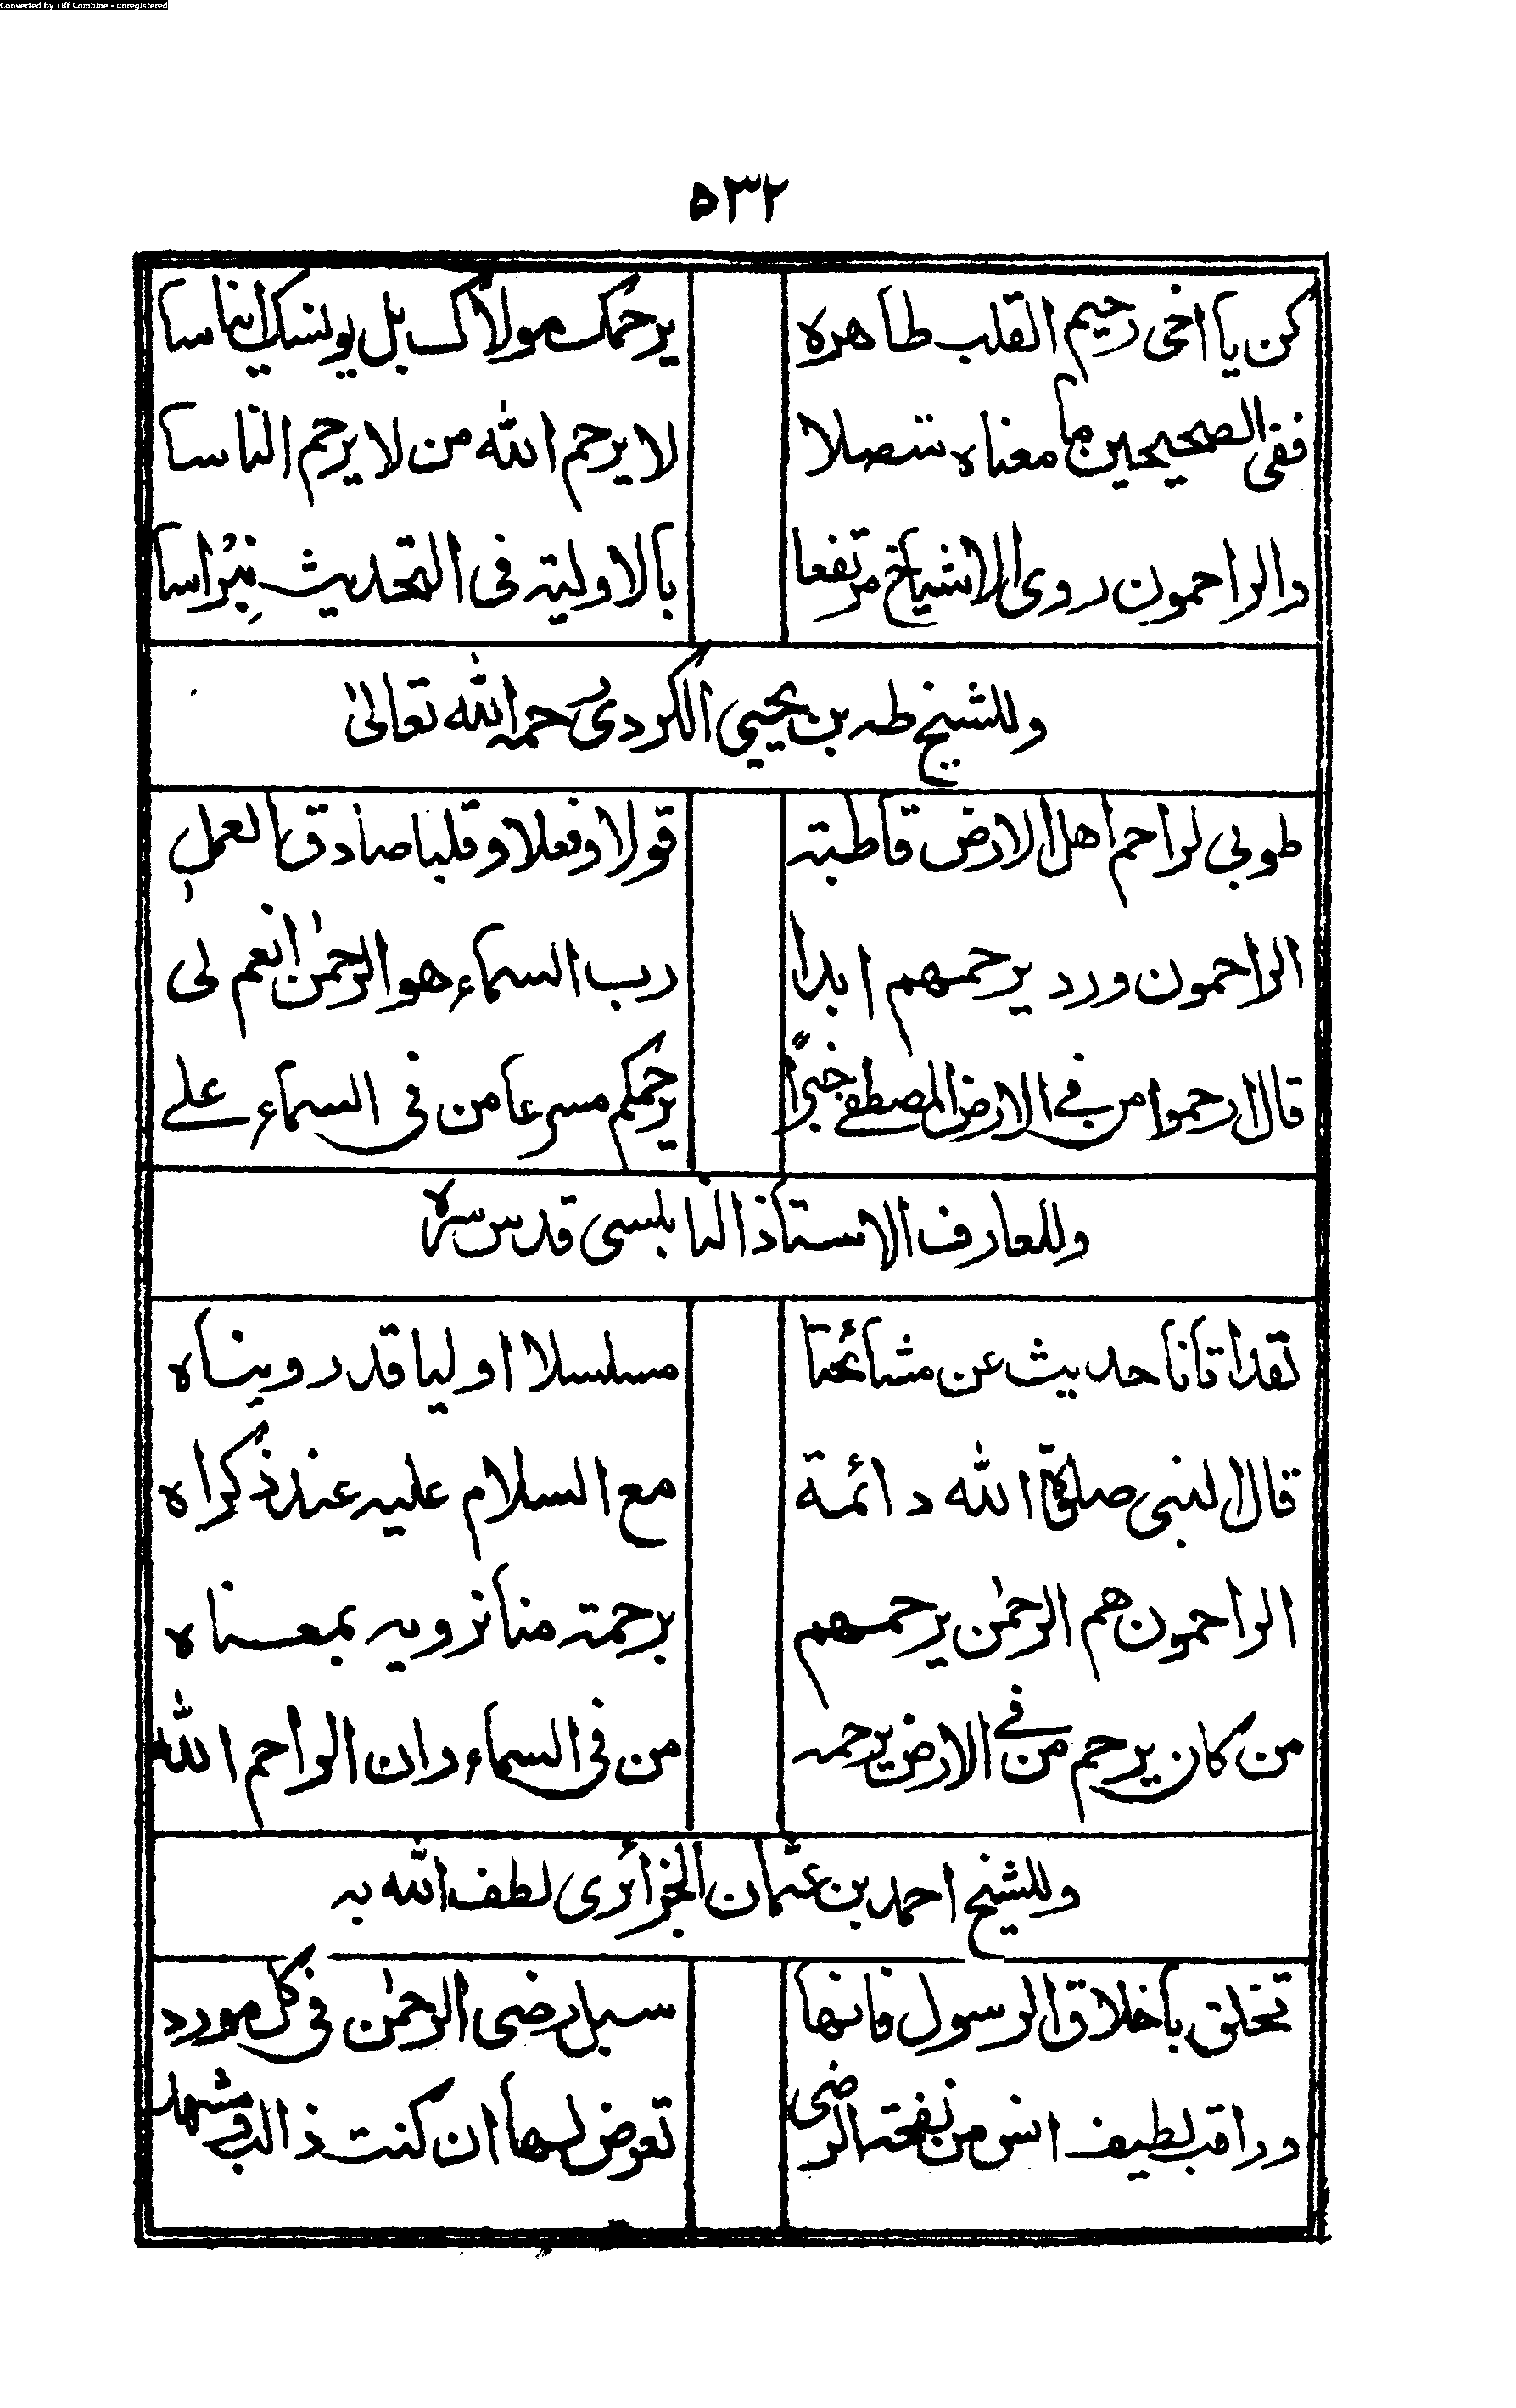 Converted by Tiff Combine - unregistered
۵۳۲
كن يا اخى رحيم القلب طاهره يرحمك مولاك بل يونسك ايناسا
ففى الصحيحين ما معناه متصلا لا يرحم الله من لا يرحم الناسا
والراحمون روى الاشياخ مرتفعا بالاولية فى التحديث نِبْراسا
وللشيخ طه بن يحيي الكردى رحمه الله تعالىٰ
طوبى لراحم اهل الارض قاطبة قولا وفعلا وقلبا صادق العمل
الراحمون ورد يرحمهم ابدا رب السماء هو الرحمٰن انعم لى
قال ارحموا من فى الارض المصطفے خبرًا يرحمكم مسرعا من فى السماء علے
وللعارف الاستاذ النابلسى قدس سره
لقد اتانا حديث عن مشائخنا مسلسلا اوليا قد رويناه
قال النبى صلوة الله دائمة مع السلام عليه عند ذكراه
الراحمون هم الرحمٰن يرحمهم برحمة منا نرويه بمعناه
من كان يرحم من فى الارض يرحمه من فى السماء وان الراحم الله
وللشيخ احمد بن عثمان الجزائرى لطف الله به
تخلق باخلاق الرسول فانها سبل رضى الرحمٰن فى كل مورد
وراقب لطيف انس من نفحة الرضى تعرض لها ان كنت ذا لب ومشهد